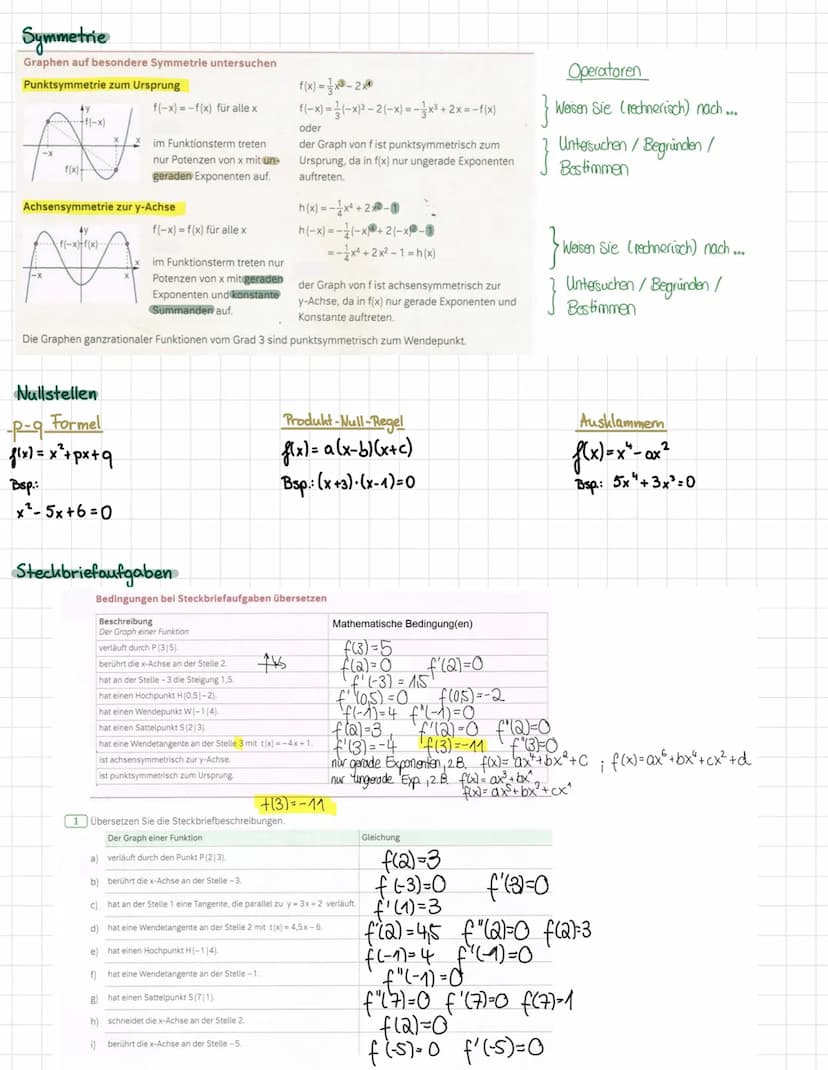 Symmetrie
Graphen auf besondere Symmetrie untersuchen
Punktsymmetrie zum Ursprung
f(−x) = −f(x) für alle x
im Funktionsterm treten
nur Potenzen von x mit un-
geraden Exponenten auf.
y
f(−x)
x
x
−x
f(x)
f(x) = 1/3 x³ − 2x¹
f(−x) = 1/3 (−x)³ − 2(−x) = −1/3 x³ + 2x = −f(x)
oder
der Graph von f ist punktsymmetrisch zum
Ursprung, da in f(x) nur ungerade Exponenten
auftreten.
Operatoren
Weisen Sie (rechnerisch) nach ...
Untersuchen / Begründen /
Bestimmen
Achsensymmetrie zur y-Achse
f(−x) = f(x) für alle x
im Funktionsterm treten nur
Potenzen von x mit geraden
Exponenten und konstante
Summanden auf.
y
f(−x) f(x)
x
−x
x
h(x) = −1/4 x⁴ + 2x² − 1
h(−x) = −1/4 (−x)⁴ + 2(−x)² − 1
= −1/4 x⁴ + 2x² − 1 = h(x)
der Graph von f ist achsensymmetrisch zur
y-Achse, da in f(x) nur gerade Exponenten und
Konstante auftreten.
Weisen Sie (rechnerisch) nach ...
Untersuchen / Begründen /
Bestimmen
Die Graphen ganzrationaler Funktionen vom Grad 3 sind punktsymmetrisch zum Wendepunkt.
Nullstellen
p-q Formel
f(x) = x² + px + q
Bsp.:
x² − 5x + 6 = 0
Produkt-Null-Regel
f(x) = a(x−b)(x+c)
Bsp.: (x+3)·(x−1) = 0
Ausklammern
f(x) = x⁴ − ax²
Bsp.: 5x⁴ + 3x³ = 0
Steckbriefaufgaben
Bedingungen bei Steckbriefaufgaben übersetzen
Beschreibung
Der Graph einer Funktion
Mathematische Bedingung(en)
verläuft durch P(3|5). f(3)=5
berührt die x-Achse an der Stelle 2. f(2)=0 f'(2)=0
hat an der Stelle −3 die Steigung 1,5. f'(−3) = 1,5
hat einen Hochpunkt H(0,5|−2). f'(0,5)=0 f(0,5)=−2
hat einen Wendepunkt W(−1|4). f(−1)=4 f"(−1)=0
hat einen Sattelpunkt S(2|3). f(2)=3 f'(2)=0 f"(2)=0
hat eine Wendetangente an der Stelle 3 mit t(x) = −4x + 1. f'(3)=−4 f(3)=−11 f"(3)=0
ist achsensymmetrisch zur y-Achse. nur gerade Exponenten, z.B. f(x)= ax⁴+bx²+c ; f(x)=ax⁶+bx⁴+cx²+d
ist punktsymmetrisch zum Ursprung. nur ungerade Exp., z.B. f(x)= ax³+bx¹
f(x)= ax⁵+bx³+cx¹
t(3)=−11
1 Übersetzen Sie die Steckbriefbeschreibungen.
Der Graph einer Funktion Gleichung
a) verläuft durch den Punkt P(2|3). f(2)=3
b) berührt die x-Achse an der Stelle −3. f(−3)=0 f'(−3)=0
c) hat an der Stelle 1 eine Tangente, die parallel zu y = 3x + 2 verläuft. f'(1)=3
d) hat eine Wendetangente an der Stelle 2 mit t(x) = 4,5x − 6. f'(2)=4,5 f"(2)=0 f(2)=3
e) hat einen Hochpunkt H(−1|4). f(−1)=4 f'(−1)=0
f) hat eine Wendetangente an der Stelle −1. f"(−1)=0
g) hat einen Sattelpunkt S(7|1). f"(7)=0 f'(7)=0 f(7)=1
h) schneidet die x-Achse an der Stelle 2. f(2)=0
i) berührt die x-Achse an der Stelle −5. f(−5)=0 f'(−5)=0